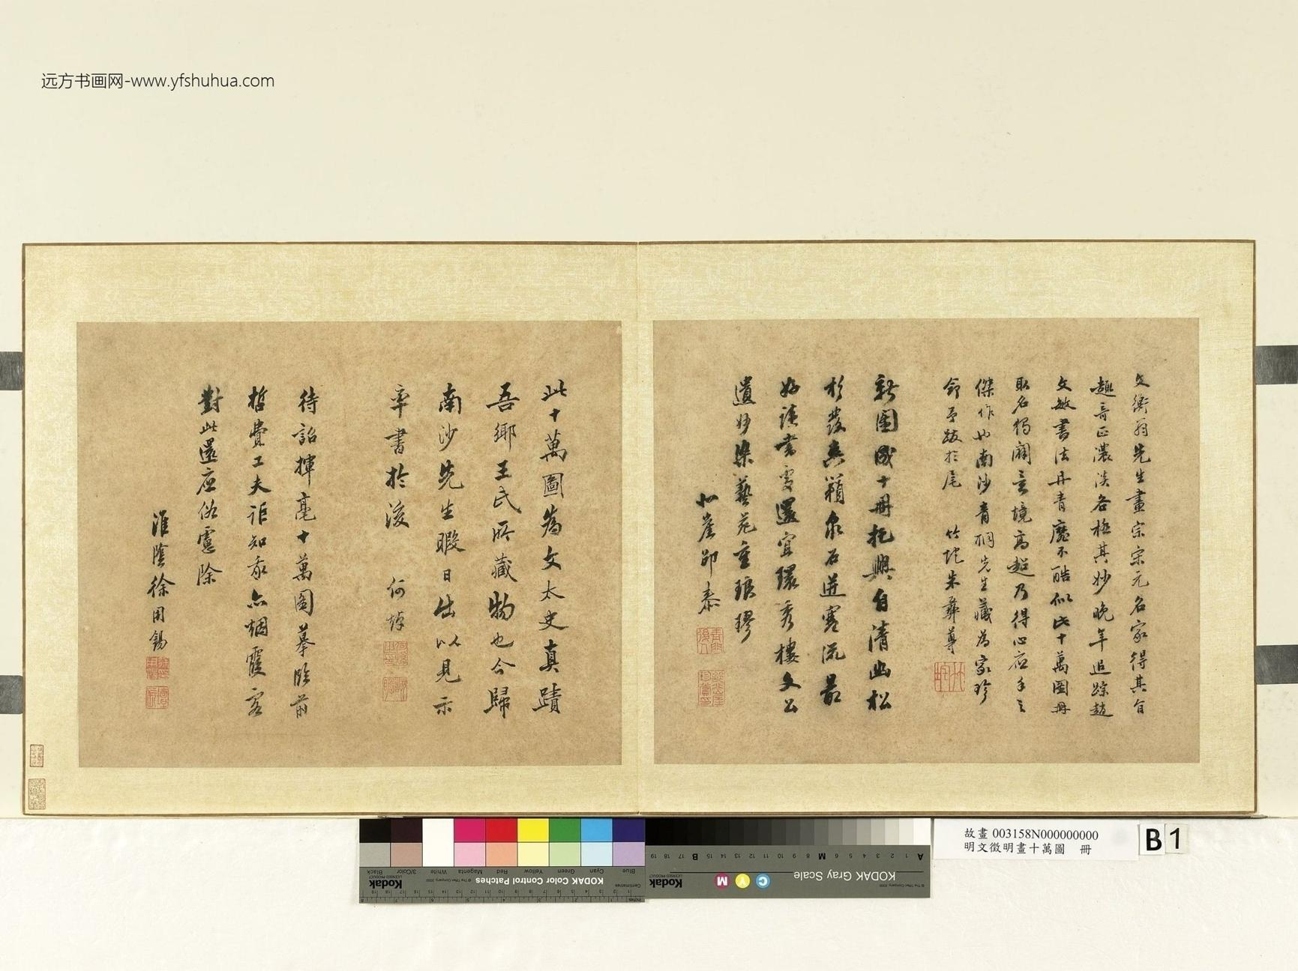 远方书画网-www.yfshuhua.com
文衡翁先生畫宗宋元名家得其自
趣奇正濃淡各極其妙晚年追踪趙
文敏書法丹青靡不酷似此十萬圖冊
取名獨闢意境高超乃得心應手之
傑作也南沙青桐先生藏為家珍
命予跋於尾 竹垞朱彝尊
新圖成十冊托興自清幽松
杉發興穎泉石迸寒流最
好讀書處還宜環秀樓文公
遺妙染藝苑重琅璆
北崖邵泰
此十萬圖為文太史真蹟
吾鄉王氏所藏物也今歸
南沙先生暇日出以見示
率書於後 何焯
待詔揮毫十萬圖摹臨前
哲費工夫詎知亦烟霞客
對此還應俗慮除
淮陰徐用錫
故畫 003158N000000000
明文徵明畫十萬圖 冊
B 1
KODAK Color Control Patches
Blue Cyan Green Yellow Red Magenta White 3/Color Black
Kodak
KODAK Gray Scale
Kodak
C Y M
A 1 2 3 4 5 6 M 8 9 10 11 12 13 14 15 B 17 18 19